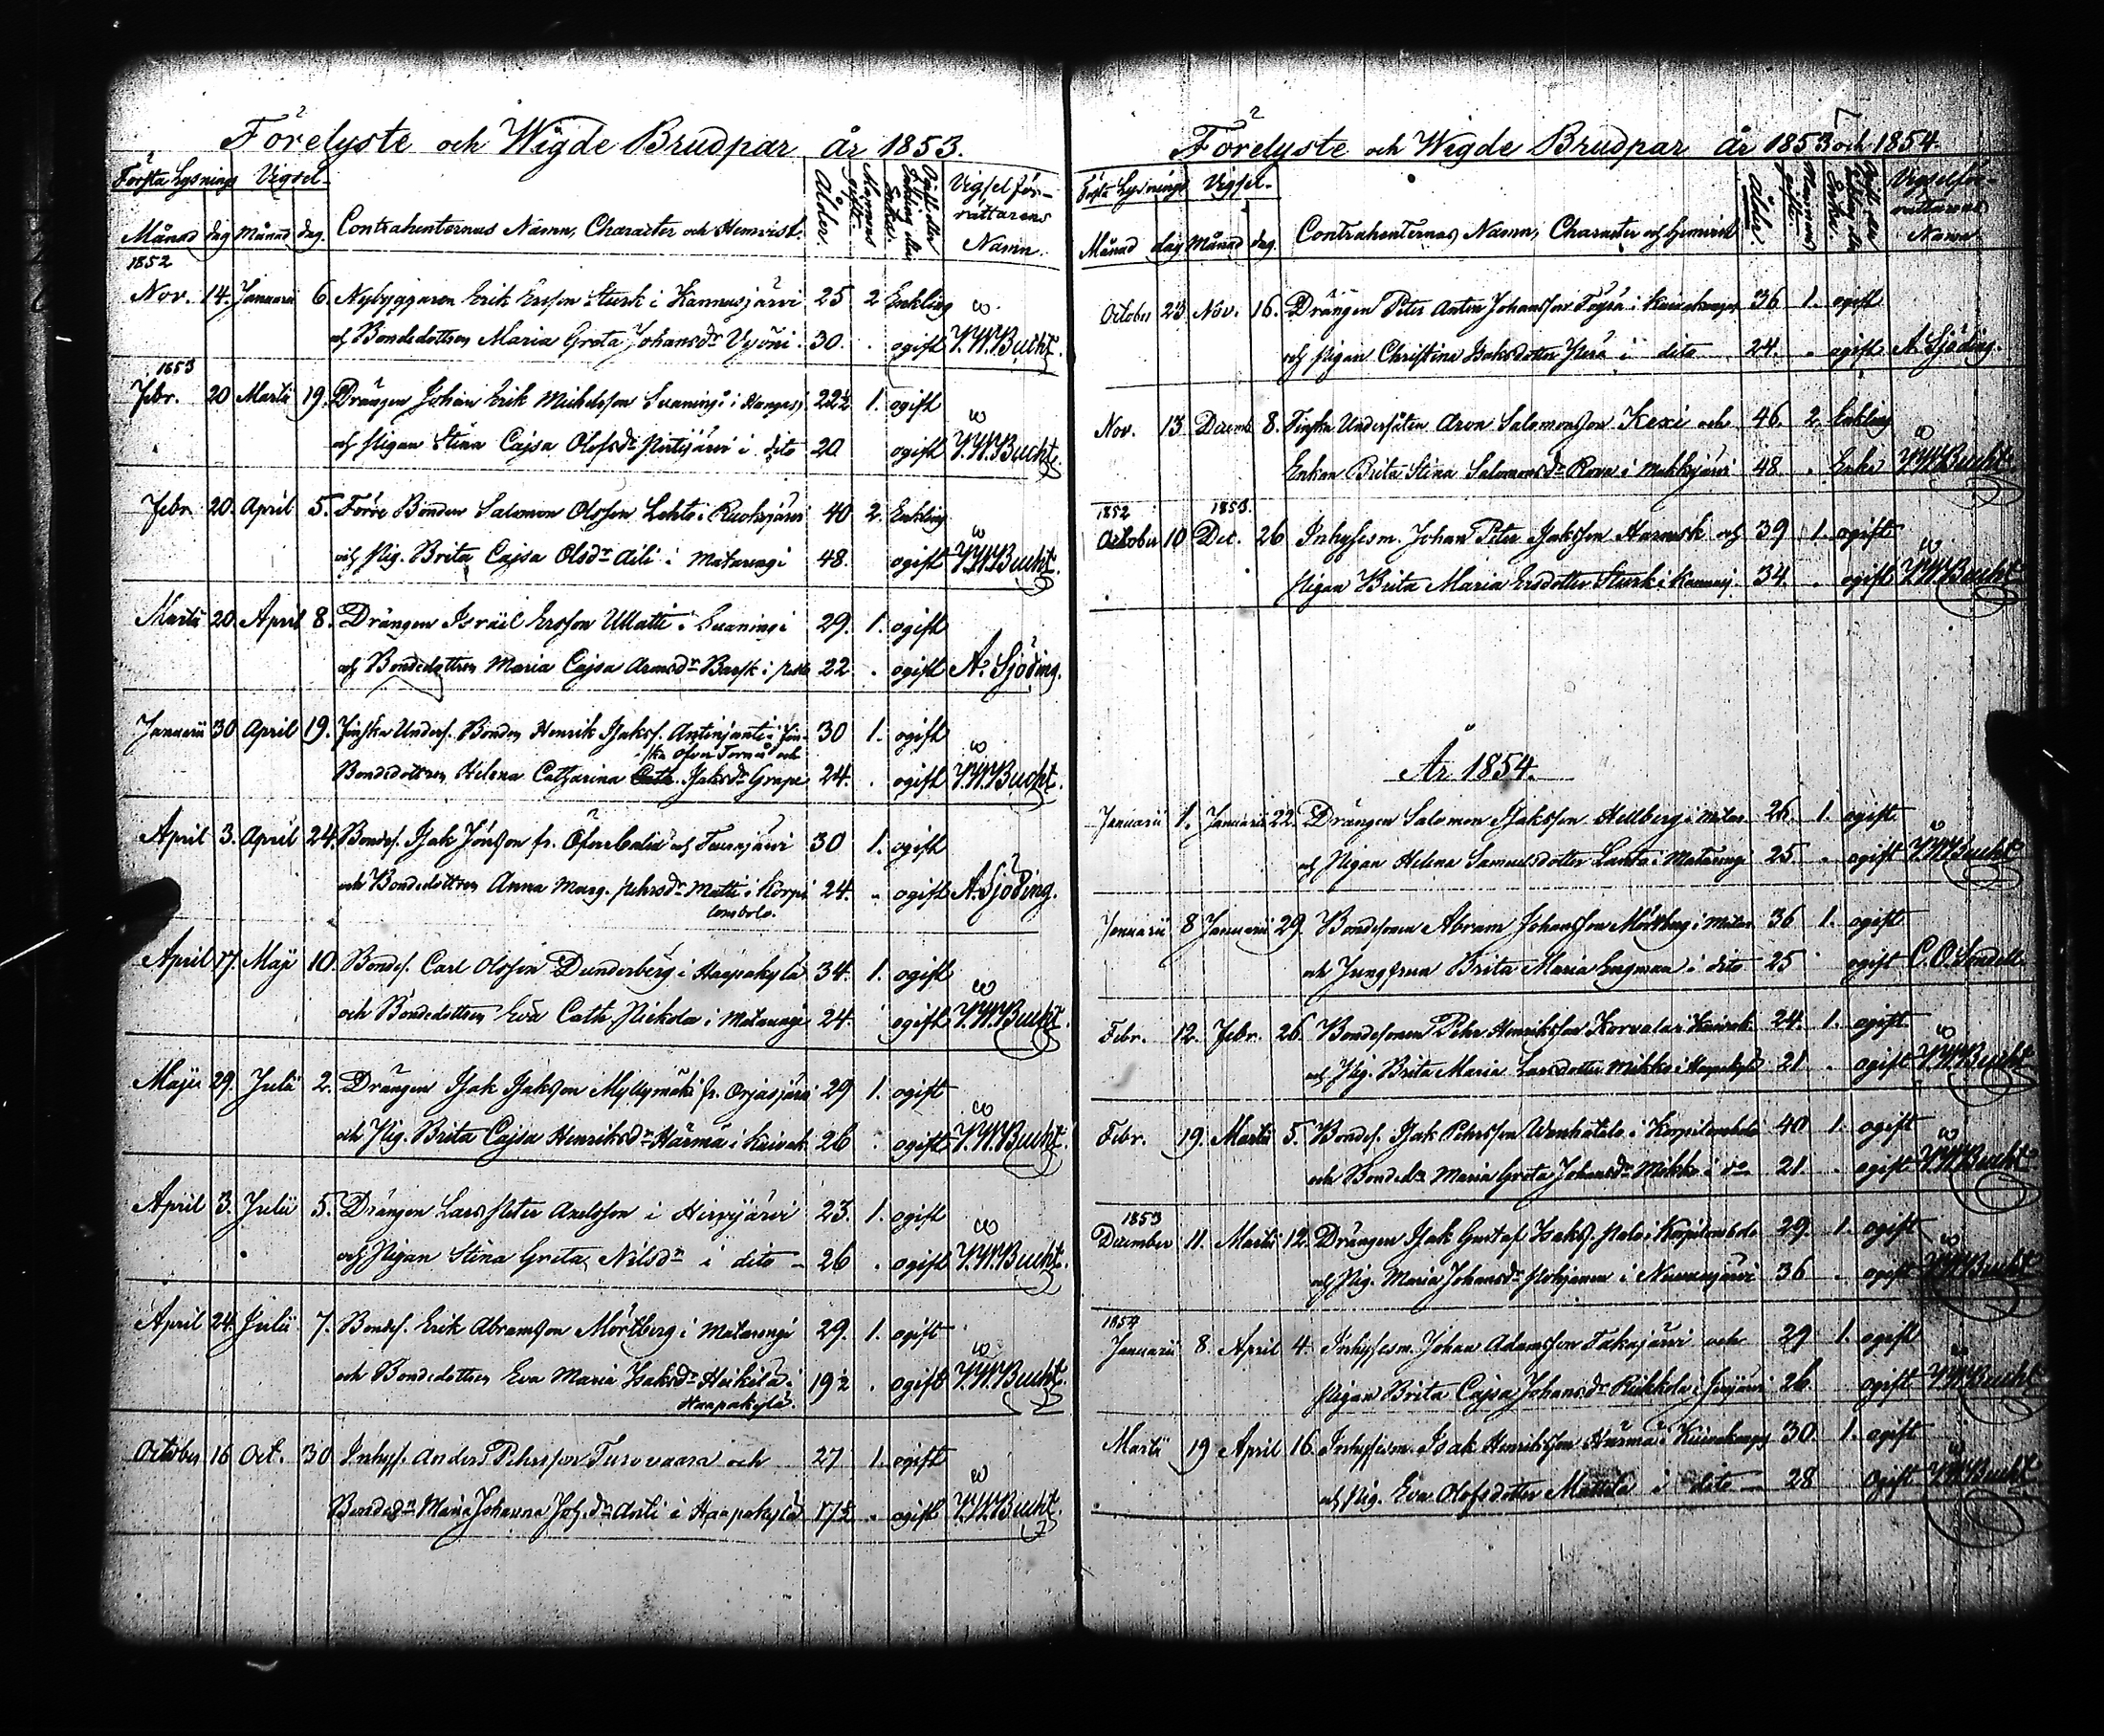 Förelyste och Wigde Brudpar år 1853.
Första Lysnings Vigsel-
Månad dag Månad dag. Contrahenternas Namn, Character och Hemvist. Ålder. Mannens gifte. Ogift eller Enkling eller Enka. Vigselför-
rättarens
Namn.
1852
Nov. 14. Januarii 6. Nybyggaren Erik Ersson Sturk i Kannusjärvi 25 2 Enkling
och Bondedottren Maria Greta Johansdr Vyöni. 30. . ogift V.W.Bucht.
1853
Febr. 20 Martii 19. Drängen Johan Erik Michelsson Svaningi i 22½ 1. ogift
och Pigan Stina Cajsa Olofsdr Pirtijärvi i dito 20 ogift V.W.Bucht.
Febr 20. April 5. Förre Bonden Salomon Olsson Lehto i Ruokojärvi 40 2. Enkling
och Pig. Brita Cajsa Olsdr Aili i Matarengi 48. ogift V.W.Bucht.
Martii 20. April 8. Drängen Israël Ersson Ullatti i Svaningi 29. 1. ogift
och Bondedottren Maria Cajsa Aronsdr Barsk i 22 . ogift A. Sjöding.
Januarii 30 April 19. Finska Unders. Bonden Henrik Isakss. Antinjanti i Fin- 30 1. ogift
ska Öfver Torneå och
Bondedottren Helena Catharina Isaksdr Grape 24. . ogift V.W.Bucht.
April 3. April 24. Bondes. Isak Jönsson fr. Öfvercalix och 30 1. ogift
och Bondedottren Anna Marg. Pehrsdr Matti i Korpi 24. . ogift A. Sjöding.
lombolo.
April 17. Maji 10. Bondes. Carl Olsson Dunderberg i Haapakylä 34. 1. ogift
och Bondedottren Eva Cath. Niskola i Matarengi 24. ogift V.W.Bucht.
Maji 29. Julii 2. Drängen Isak Isaksson Myllymäki fr. Orjasjärvi 29 1. ogift
och Pig. Brita Cajsa Henriksdr Härmä i Kuivak. 26 . ogift V.W.Bucht.
April 3. Julii 5. Drängen Lars Peter Axelsson i Hirvijärvi 23. 1. ogift
och Pigan Stina Greta Nilsdr i dito - 26 . ogift V.W.Bucht.
April 24. Julii 7. Bondes. Erik Abramsson Mörtberg i Matarengi 29. 1. ogift
och Bondedottren Eva Maria Isaksdr Heikilä i 19½ . ogift V.W.Bucht.
Haapakylä.
October 16 Oct. 30 Inhys. Anders Pehrsson Turovaara och 27 1. ogift
Bondedr Maria Johanna Joh.dr Anti i Haapakylä 17½ . ogift V.W.Bucht.
Förelyste och Wigde Brudpar år 1853 och 1854.
Första Lysnings Vigsel-
Månad dag Månad dag. Contrahenternas Namn, Character och Hemvist Ålder. Mannens gifte. Ogift eller Enkling eller Enka. Vigselför-
rättarens
Namn.
October 23 Nov. 16. Drängen Peter Anton Johansson Töyrä i Kuivakangas 36 1. ogift
och Pigan Christina Isaksdotter i dito 24. . ogift A. Sjöding.
Nov. 13 Decemb. 8. Finska Undersåten Aron Salomonsson Kexi och 46. 2. Enkling
Enkan Brita Stina Salomonsdr Rova i 48. . Enka V.W.Bucht.
1852 1853.
October 10 Dec. 26 Inhysesm. Johan Peter Isaksson och 39 1. ogift
Pigan Brita Maria Ersdotter Sturk i Kannusj. 34. . ogift V.W.Bucht
År 1854.
Januarii 1. Januarii 22. Drängen Salomon Isaksson Hellberg i Matar. 26. 1. ogift
och Pigan Helena Samuelsdotter Lanta i Matarengi 25. . ogift V.W.Bucht
Januarii 8 Januarii 29. Bondesonen Abram Johansson Mörtberg i Matar. 36 1. ogift
och Jungfrun Brita Maria Engman i dito 25 ogift C.O.
Febr. 12. Febr. 26. Bondesonen Pehr Henriksson Korvala i Kuivak. 24. 1. ogift
och Pig. Brita Maria Larsdotter Mikko i Haapakylä 21. . ogift V.W.Bucht
Febr. 19. Martii 5. Bondes. Isak Pehrsson Wanhatalo i Korpilombolo 40 1. ogift
och Bondedr Maria Greta Johansdr Mikko i do 21. . ogift V.W.Bucht
1853
December 11. Martii 12. Drängen Isak Gustaf Isakss. Palo i Korpilombolo 29. 1. ogift
och Pig. Maria Johansdr i 36 . ogift V.W.Bucht
1854
Januarii 8. April 4. Inhysesm. Johan Adamsson och 29 1. ogift
Pigan Brita Cajsa Johansdr i 26. ogift V.W.Bucht
Martii 19 April 16. Inhysesm. Isak Henriksson Härmä i Kuivakangas 30. 1. ogift
och Pig. Eva Olofsdotter Mattila i dito - 28 Ogift V.W.Bucht